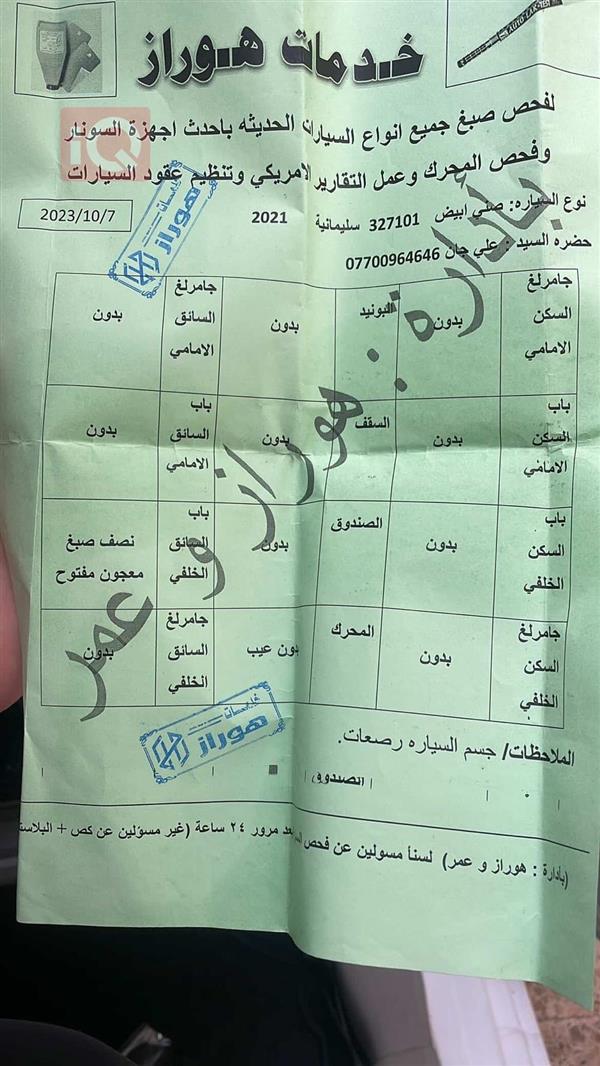 خدمات هوراز
AUTO-LAK-TEST
لفحص صبغ جميع انواع السيارات الحديثه باحدث اجهزة السونار
وفحص المحرك وعمل التقارير الامريكي وتنظيم عقود السيارات
نوع السياره: صني ابيض 327101 سليمانية 2021
2023/10/7
حضره السيد : علي جان 07700964646
جامرلغ السكن الامامي
بدون
البونيد
بدون
جامرلغ السائق الامامي
بدون
باب السكن الامامي
بدون
السقف
بدون
باب السائق الامامي
بدون
باب السكن الخلفي
بدون
الصندوق
بدون
باب السائق الخلفي
نصف صبغ معجون مفتوح
جامرلغ السكن الخلفي
بدون
المحرك
بدون عيب
جامرلغ السائق الخلفي
بدون
الملاحظات/ جسم السياره رصعات.
الصندوق
(بادارة : هوراز و عمر) لسنأ مسولين عن فحص
بعد مرور ٢٤ ساعة (غير مسؤلين عن كص + البلاستك
بأدارة : هوراز و عمر
خدمات هوراز
خدمات هوراز
IQ